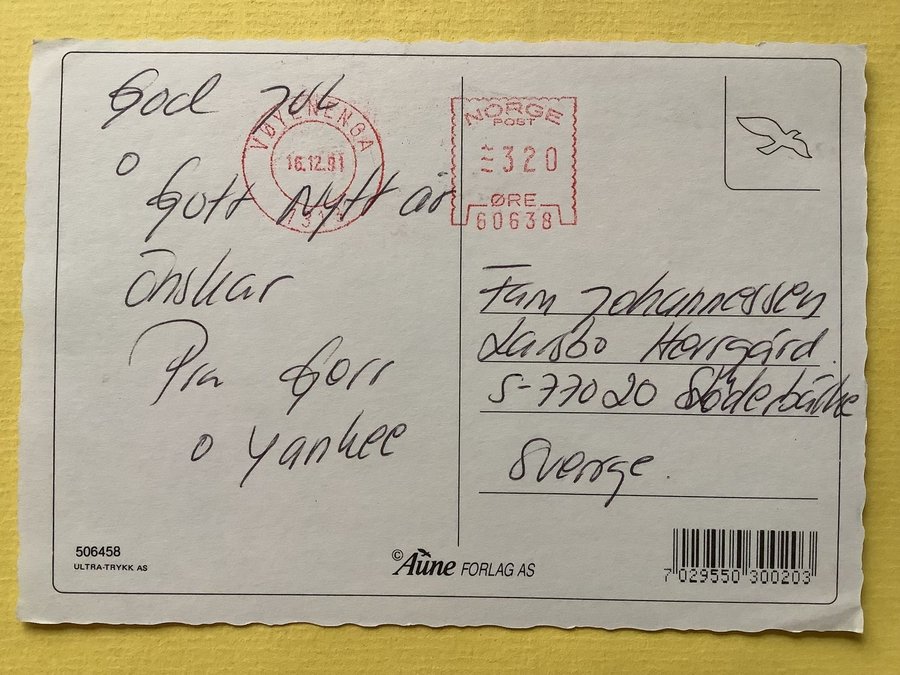 God Jul
o
Gott Nytt år
Önskar
Pia Geir
o Yankee
VØYENENGA
16.12.91
NORGE
POST
320
ØRE
60638
Fam Johannessen
Larsbo Herrgård
S-77020 Söderbärke
Sverige.
506458
ULTRA-TRYKK AS
© Aune FORLAG AS
7 029550 300203